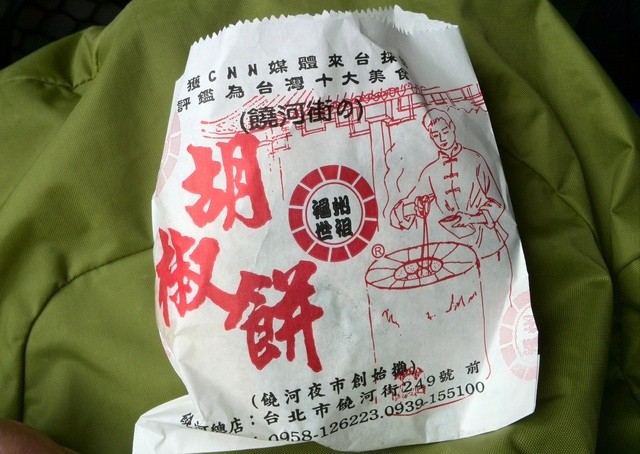 獲CNN媒體來台採
評鑑為台灣十大美食
(饒河街の)
胡椒餅
福州
世祖
®
(饒河夜市創始攤)
饒河總店：台北市饒河街249號 前
：0958-126223.0939-155100